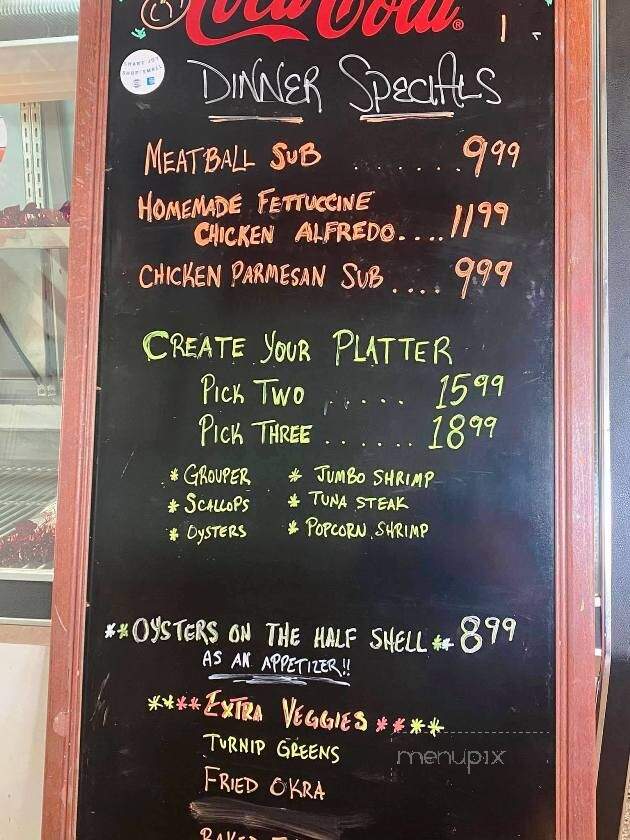 Coca-Cola ®
SHOP SMALL
DINNER SPECIALS
MEATBALL SUB ........ 9 99
HOMEMADE FETTUCCINE
CHICKEN ALFREDO.... 11 99
CHICKEN PARMESAN SUB .... 9 99
CREATE YOUR PLATTER
PICK TWO ...... 15 99
PICK THREE ...... 18 99
* GROUPER * JUMBO SHRIMP
* SCALLOPS * TUNA STEAK
* OYSTERS * POPCORN SHRIMP
** OYSTERS ON THE HALF SHELL ** 8 99
AS AN APPETIZER!!
**** EXTRA VEGGIES ****
TURNIP GREENS
menupix
FRIED OKRA
BAKED